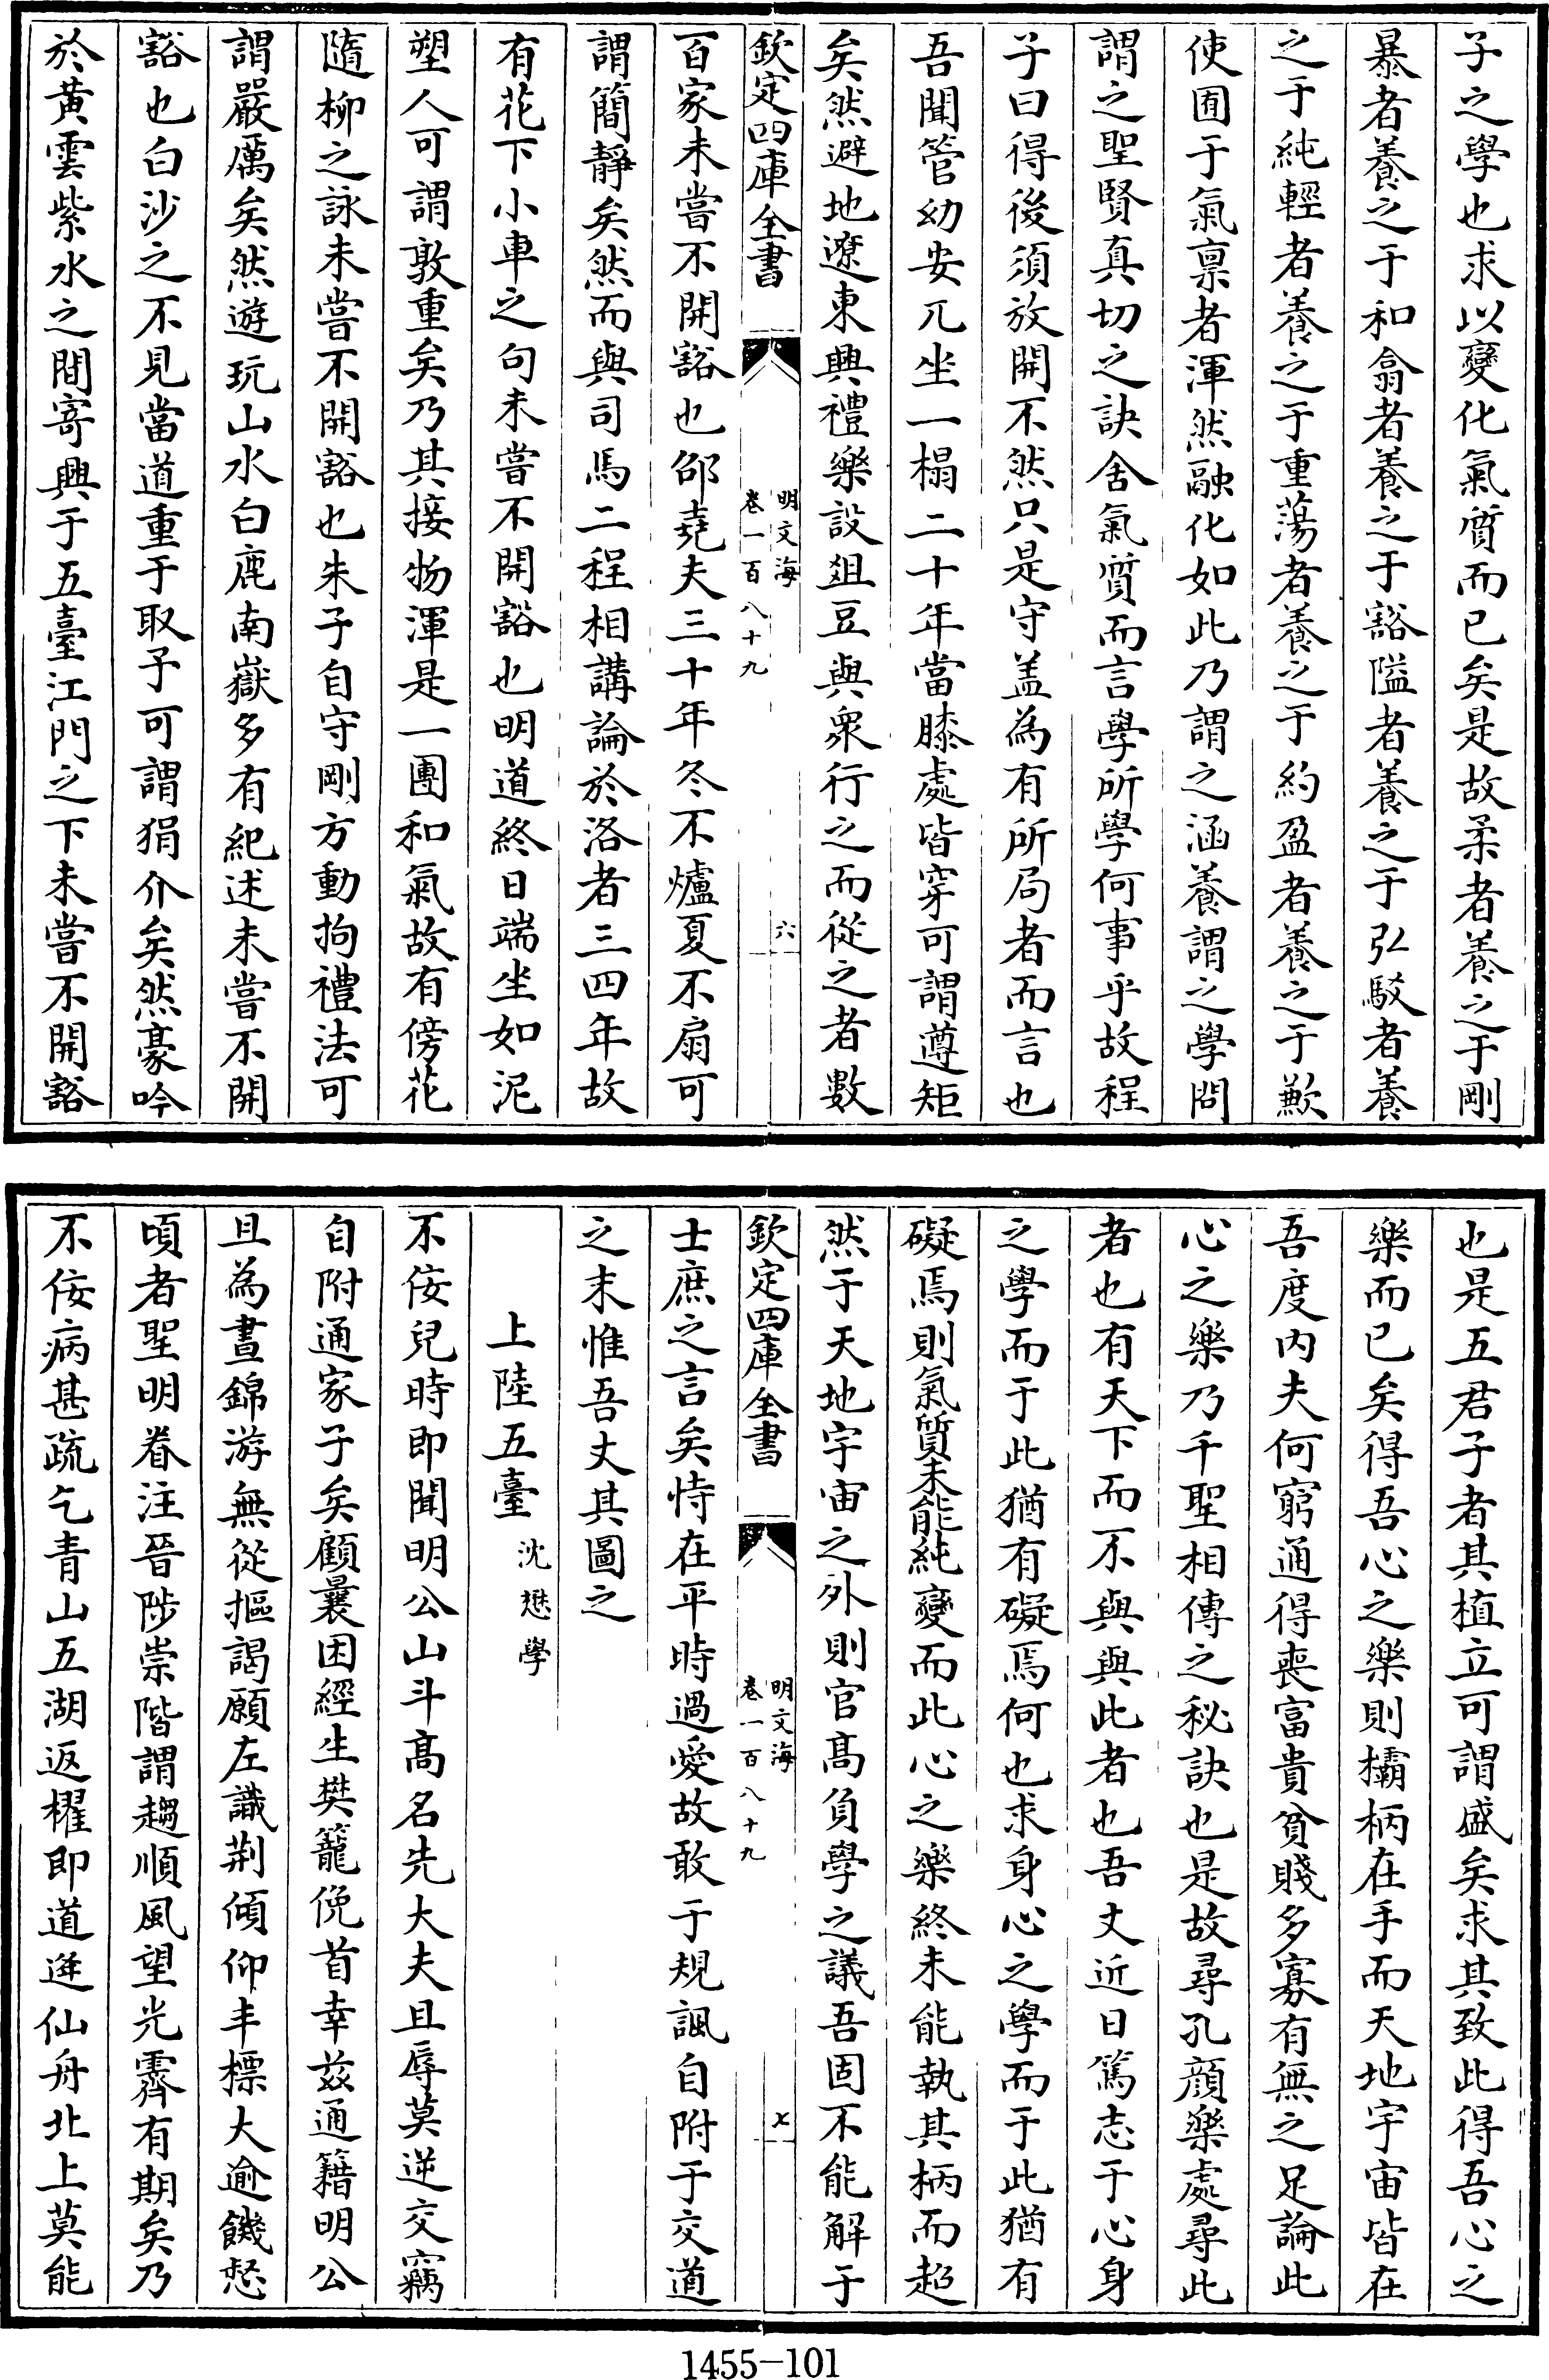 子之學也求以變化氣質而已矣是故柔者養之于剛
暴者養之于和翕者養之于豁隘者養之于弘駁者養
之于純輕者養之于重蕩者養之于約盈者養之于歉
使囿于氣禀者渾然融化如此乃謂之涵養謂之學問
謂之聖賢真切之訣舍氣質而言學所學何事乎故程
子曰得後須放開不然只是守盖為有所局者而言也
吾聞管幼安兀坐一榻二十年當膝處皆穿可謂遵矩
矣然避地遼東興禮樂設俎豆與衆行之而從之者數
欽定四庫全書
明文海
卷一百八十九
六
百家未嘗不開豁也邵堯夫三十年冬不爐夏不扇可
謂簡靜矣然而與司馬二程相講論於洛者三四年故
有花下小車之句未嘗不開豁也明道終日端坐如泥
塑人可謂敦重矣乃其接物渾是一團和氣故有傍花
隨柳之詠未嘗不開豁也朱子自守剛方動拘禮法可
謂嚴厲矣然遊玩山水白鹿南嶽多有紀述未嘗不開
豁也白沙之不見當道重于取予可謂狷介矣然豪吟
於黃雲紫水之間寄興于五臺江門之下未嘗不開豁
也是五君子者其植立可謂盛矣求其致此得吾心之
樂而已矣得吾心之樂則欛柄在手而天地宇宙皆在
吾度内夫何窮通得喪富貴貧賤多寡有無之足論此
心之樂乃千聖相傳之秘訣也是故尋孔顔樂處尋此
者也有天下而不與與此者也吾丈近日篤志于心身
之學而于此猶有礙焉何也求身心之學而于此猶有
礙焉則氣質未能純變而此心之樂終未能執其柄而超
然于天地宇宙之外則官髙負學之議吾固不能解于
欽定四庫全書
明文海
卷一百八十九
七
士庶之言矣恃在平時過愛故敢于規諷自附于交道
之末惟吾丈其圖之
上陸五臺 沈懋學
不佞兒時即聞明公山斗髙名先大夫且辱莫逆交竊
自附通家子矣顧曩困經生樊籠俛首幸兹通籍明公
且為晝錦游無從摳謁願左識荆傾仰丰標大逾饑愁
頃者聖明眷注晉陟崇階謂趨順風望光霽有期矣乃
不佞病甚疏乞青山五湖返櫂即道逢仙舟北上莫能
1455-101